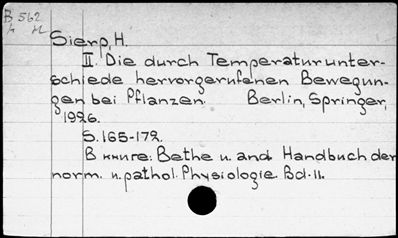 B 562
h M
Sierp, H.
II. Die durch Temperaturunter-
schiede hervorgerufenen Bewegun-
gen bei Pflanzen. Berlin, Springer,
1926.
S. 165-172.
В книге: Bethe u. and. Handbuch der
norm. u. pathol. Physiologie. Bd. 11.